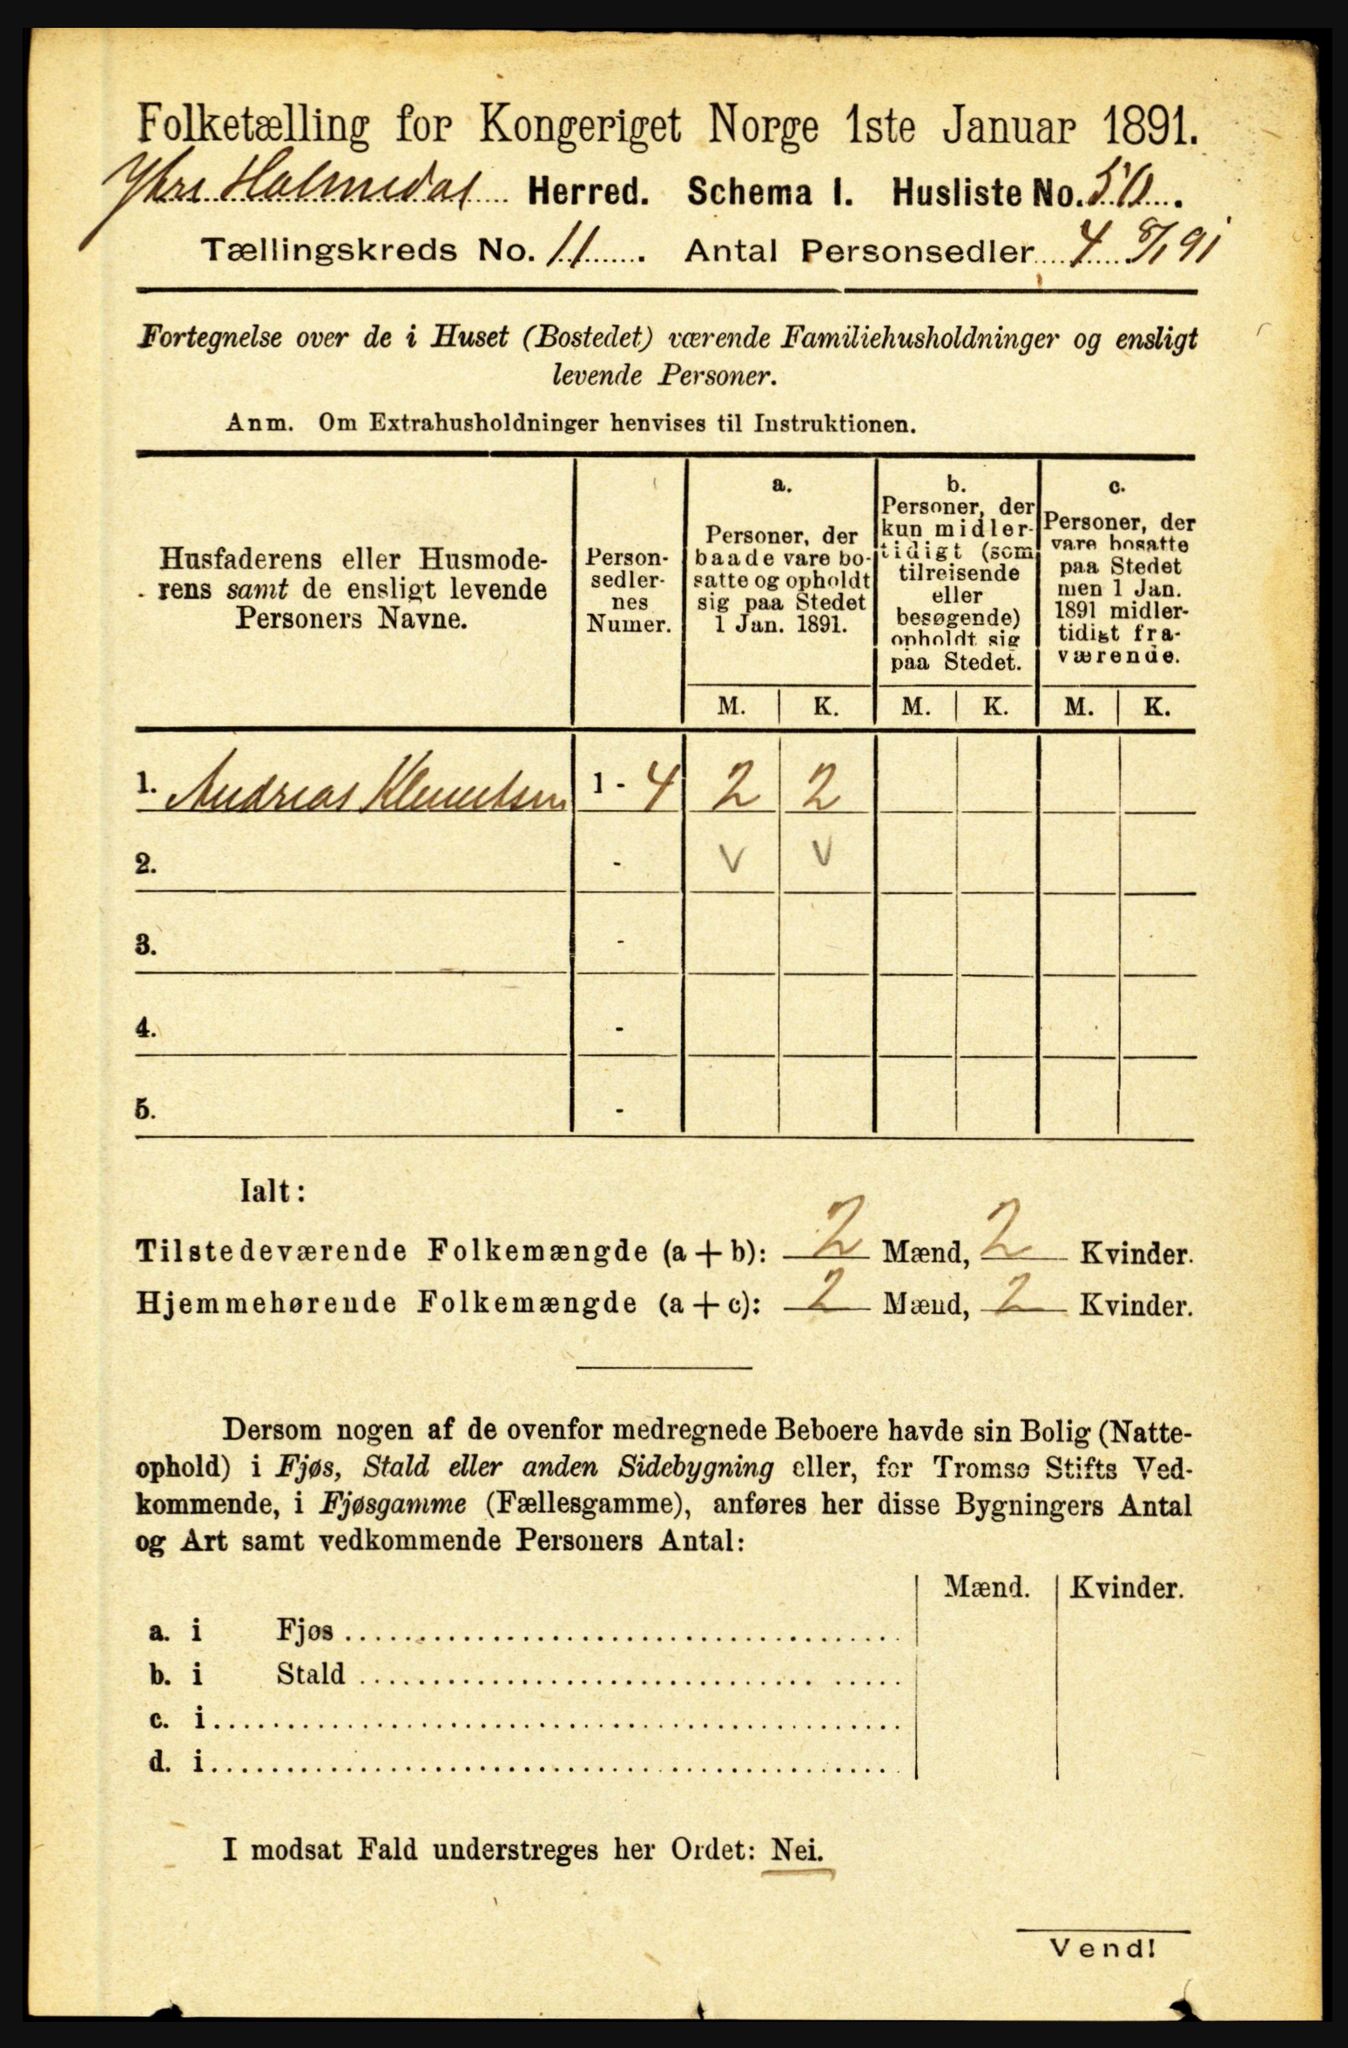 Folketælling for Kongeriget Norge 1ste Januar 1891.
Ytre Holmedal Herred. Schema I. Husliste No. 50.
Tællingskreds No. 11. Antal Personsedler 4 8/1 91
Fortegnelse over de i Huset (Bostedet) værende Familiehusholdninger og ensligt
levende Personer.
Anm. Om Extrahusholdninger henvises til Instruktionen.
Husfaderens eller Husmode-
rens samt de ensligt levende
Personers Navne.
Person-
sedler-
nes
Numer.
a.
Personer, der
baade vare bo-
satte og opholdt
sig paa Stedet
1 Jan. 1891.
b.
Personer, der
kun midler-
tidigt (som
tilreisende
eller
besøgende)
opholdt sig
paa Stedet.
c.
Personer, der
vare bosatte
paa Stedet
men 1 Jan.
1891 midler-
tidigt fra-
værende.
M. K. M. K. M. K.
1. Andreas Klemetsen 1 - 4 2 2
2. - v v
3. -
4. -
5. -
Ialt:
Tilstedeværende Folkemængde (a + b): 2 Mænd, 2 Kvinder.
Hjemmehørende Folkemængde (a + c): 2 Mænd, 2 Kvinder.
Dersom nogen af de ovenfor medregnede Beboere havde sin Bolig (Natte-
ophold) i Fjøs, Stald eller anden Sidebygning eller, for Tromsø Stifts Ved-
kommende, i Fjøsgamme (Fællesgamme), anføres her disse Bygningers Antal
og Art samt vedkommende Personers Antal:
Mænd. Kvinder.
a. i Fjøs
b. i Stald
c. i
d. i
I modsat Fald understreges her Ordet: Nei.
Vend!